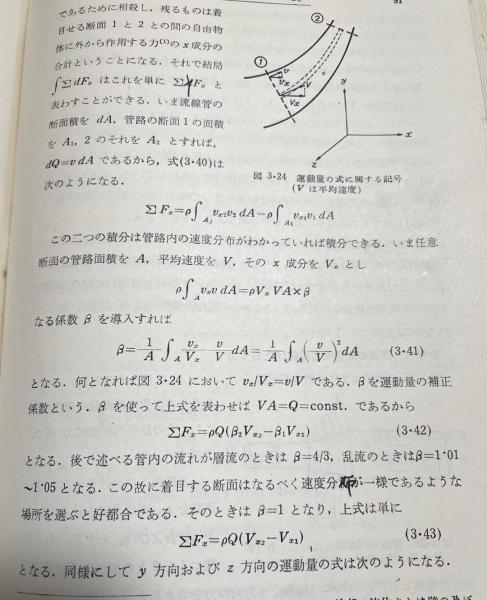 91
であるために相殺し，残るものは着
目せる断面 1 と 2 との間の自由物
体に外から作用する力⁽¹⁾の x 成分の
合計ということになる．それで結局
∫∑dFₓ はこれを単に ∑Fₓ と
表わすことができる．いま流線管の
断面積を dA，管路の断面 1 の面積
を A₁，2 のそれを A₂ とすれば，
dQ=v dA であるから，式(3･40)は
次のようになる．
② ① v vx V Vx y x z
図 3･24 運動量の式に関する記号
(V は平均速度)
∑Fₓ=ρ∫_A₂ vₓ₂v₂ dA−ρ∫_A₁ vₓ₁v₁ dA
この二つの積分は管路内の速度分布がわかっていれば積分できる．いま任意
断面の管路面積を A，平均速度を V，その x 成分を Vₓ とし
ρ∫_A vₓv dA=ρVₓ VA×β
なる係数 β を導入すれば
β=1/A ∫_A vₓ/Vₓ v/V dA=1/A ∫_A (v/V)² dA (3･41)
となる．何となれば図 3･24 において vₓ/Vₓ=v/V である．β を運動量の補正
係数という．β を使って上式を表わせば VA=Q=const. であるから
∑Fₓ=ρQ(β₂Vₓ₂−β₁Vₓ₁) (3･42)
となる．後で述べる管内の流れが層流のときは β=4/3，乱流のときはβ=1･01
~1･05 となる．この故に着目する断面はなるべく速度分布が一様であるような
場所を選ぶと好都合である．そのときは β=1 となり，上式は単に
∑Fₓ=ρQ(Vₓ₂−Vₓ₁) (3･43)
となる．同様にして y 方向および z 方向の運動量の式は次のようになる．